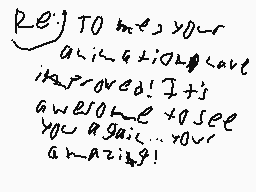 Re: TO me, your
animations have
improved! It's
awesome to see
you again... your
amazing!